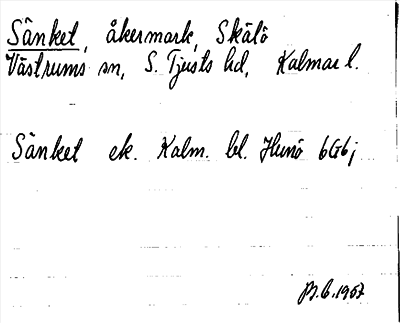 Sänket, åkermark, Skälö
Västrums sn, S. Tjusts hd, Kalmar l.
Sänket ek. Kalm. bl. Hunö 6G6j
B.C. 1957